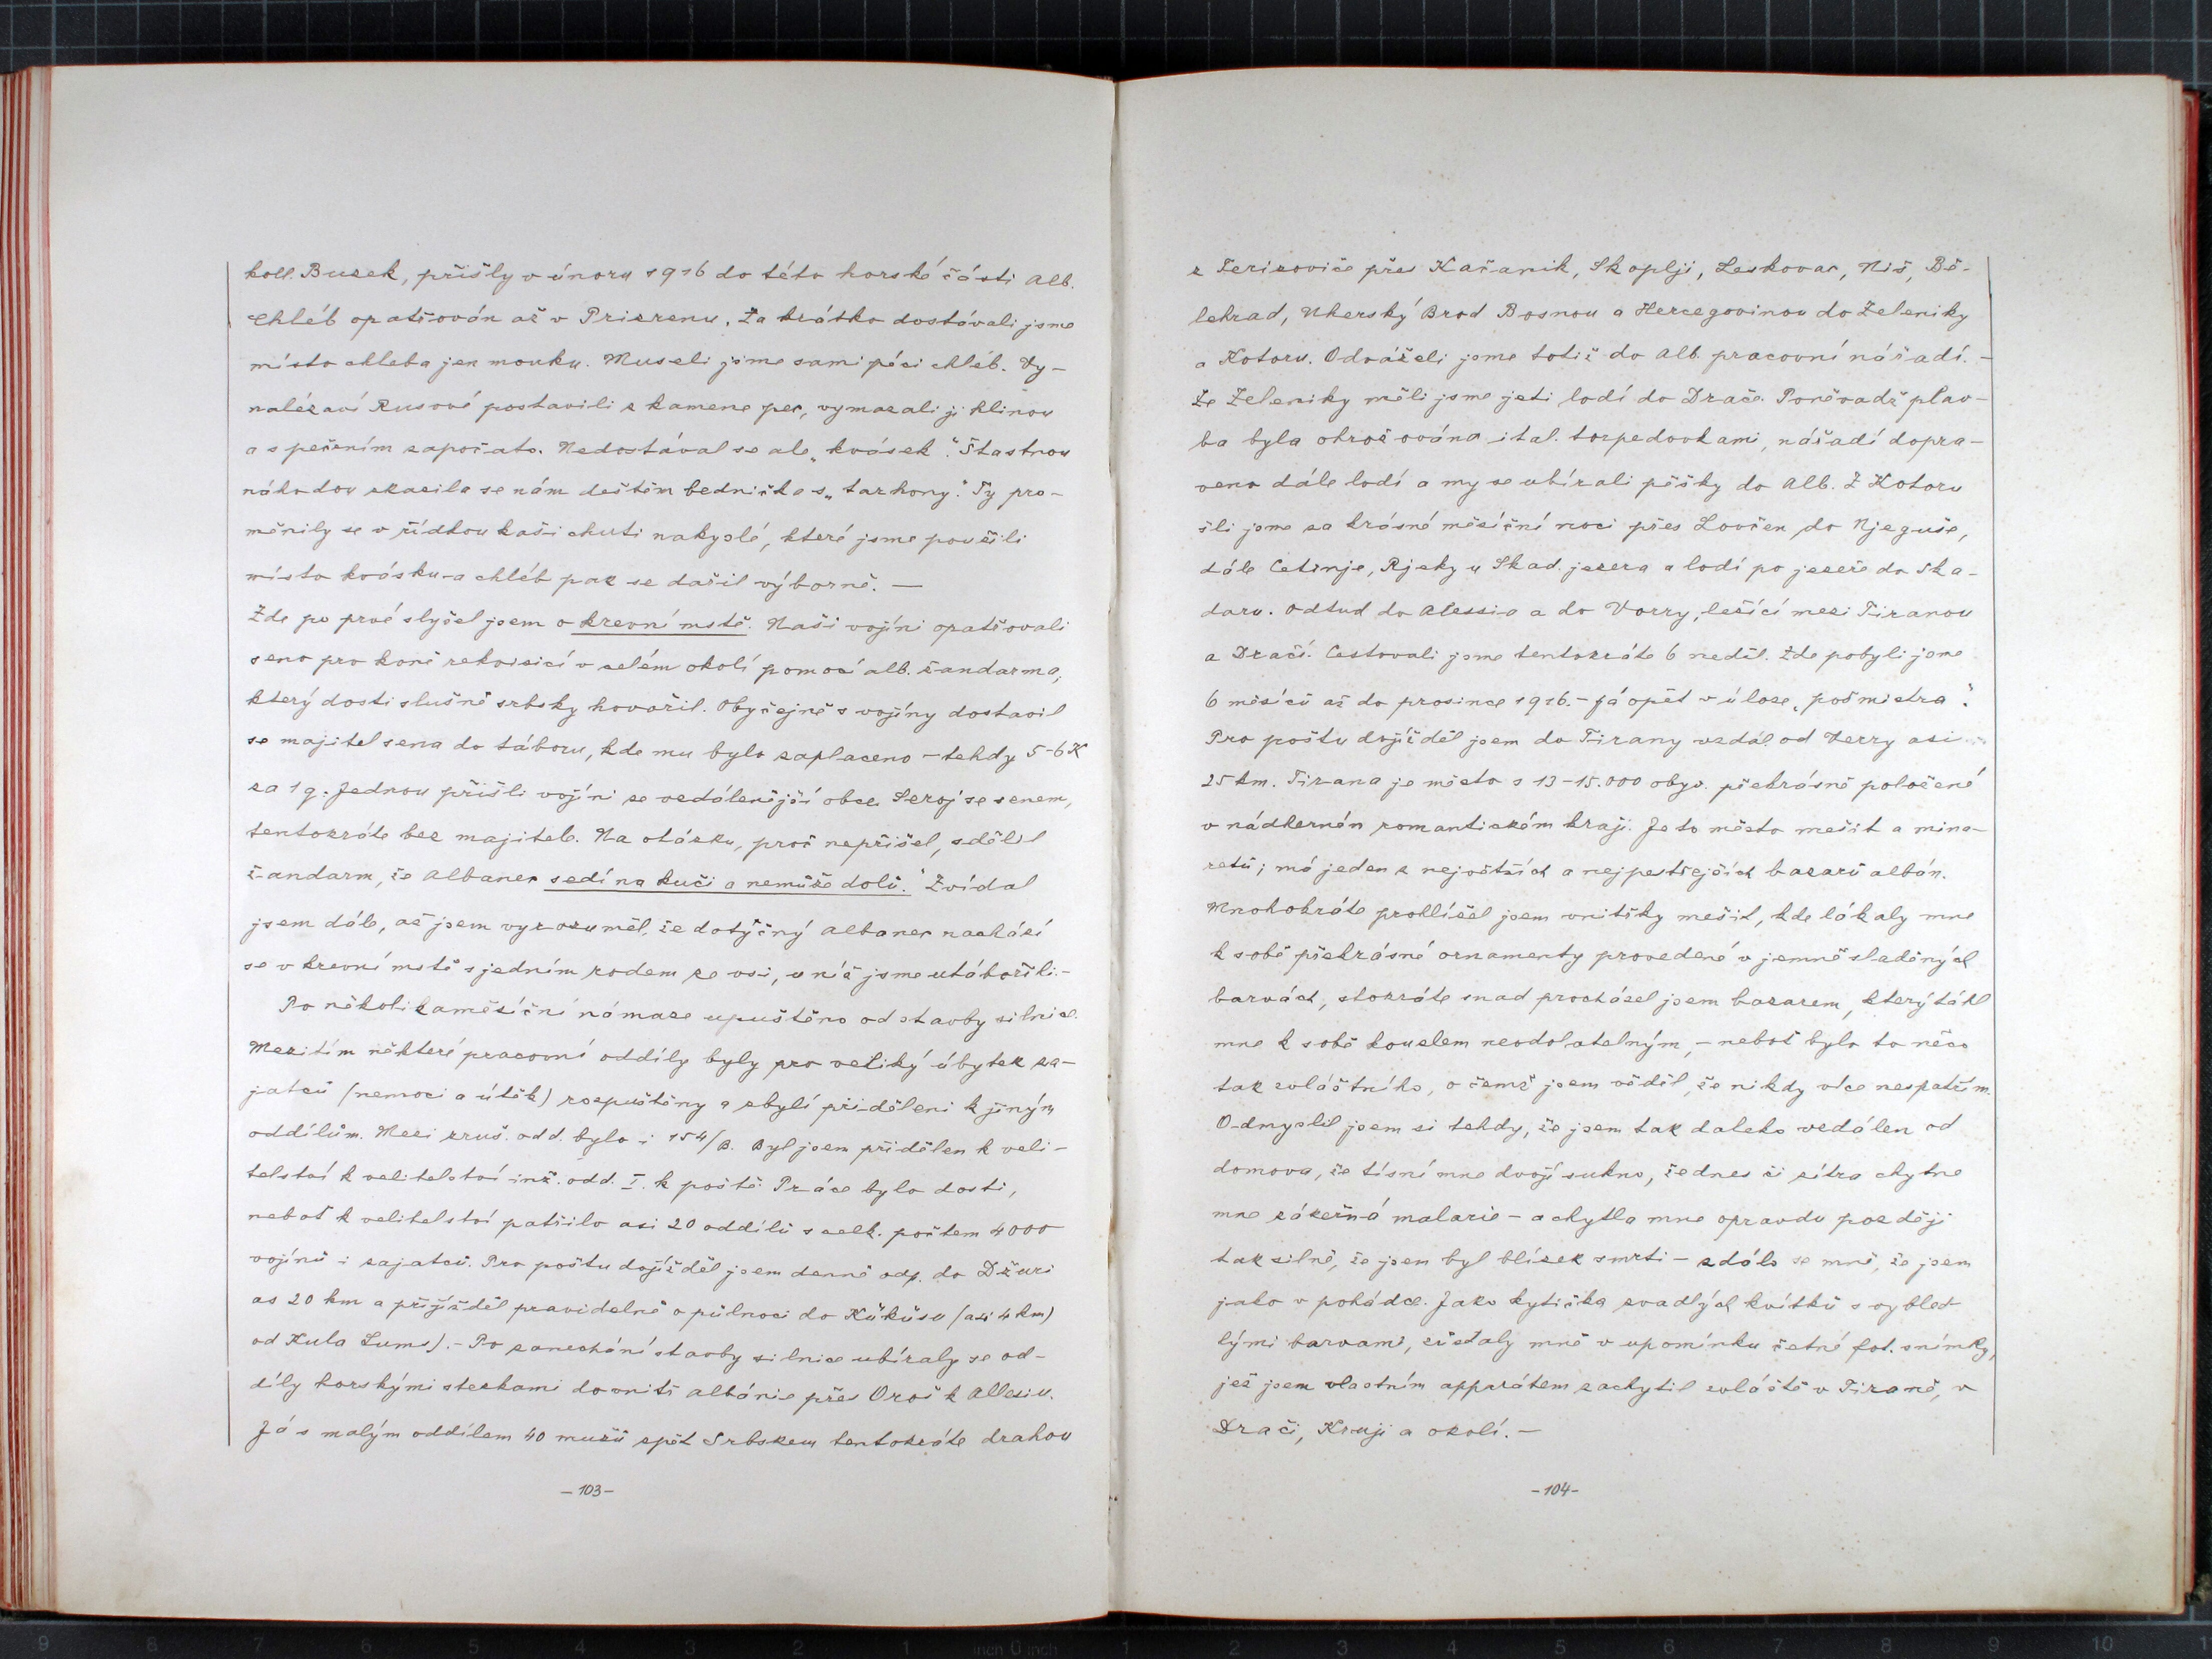 koll. Buzek, přišly v únoru 1916 do této horské části Alb.
Chléb opatřován až v Prizrenu. Za krátko dostávali jsme
místo chleba jen mouku. Museli jsme sami péci chléb. Vy-
nalézaví Rusové postavili z kamene pec, vymazali ji hlinou
a s pečením započato. Nedostával se ale „kvásek“. Šťastnou
náhodou zkazila se nám deštěm bednička s „tarhony“. Ty pro-
měnily se v řídkou kaši chuti nakyslé, které jsme použili
místo kvásku a chléb pak se dařil výborně. —
Zde po prvé slyšel jsem o krevní mstě. Naši vojíni opatřovali
seno pro koně rekvisicí v celém okolí pomocí alb. žandarma,
který dosti slušně srbsky hovořil. Obyčejně s vojíny dostavil
se majitel sena do táboru, kde mu bylo zaplaceno – tehdy 5-6 K
za 1 q. Jednou přišli vojíni ze vzdálenější obce Seroj se senem,
tentokráte bez majitele. Na otázku, proč nepřišel, sdělil
žandarm, že Albanec sedí na kuči a nemůže dolů.“ Zvídal
jsem dále, až jsem vyrozuměl, že dotyčný Albanec nachází
se v krevní mstě s jedním rodem ze vsi, u níž jsme utábořili. –
Po několikaměsíční námaze upuštěno od stavby silnice.
Mezitím některé pracovní oddíly byly pro veliký úbytek za-
jatců (nemoci a útěk) rozpuštěny a zbylí přiděleni k jiným
oddílům. Mezi zruš. odd. bylo i 154/B. Byl jsem přidělen k veli-
telství k velitelství inž. odd. I. k poště. Práce bylo dosti,
neboť k velitelství patřilo asi 20 oddílů s celk. počtem 4000
vojínů i zajatců. Pro poštu dojížděl jsem denně odp. do Džuri
as 20 km a přijížděl pravidelně o půlnoci do Kükúsu (asi 4 km)
od Kula Lums). – Po zanechání stavby silnice ubíraly se od-
díly horskými stezkami dovnitř Albánie přes Oroš k Allesiu.
Já s malým oddílem 40 mužů zpět Srbskem tentokráte drahou
– 103 –
z Ferizoviče přes Kačanik, Skoplji, Leskovac, Niš, Bě-
lehrad, Uherský Brod Bosnou a Hercegovinou do Zeleniky
a Kotoru. Odváželi jsme totiž do Alb. pracovní nářadí. –
Ze Zeleniky měli jsme jeti lodí do Drače. Poněvadž plav-
ba byla ohrožována ital. torpedovkami, nářadí dopra-
veno dále lodí a my se ubírali pěšky do Alb. Z Kotoru
šli jsme za krásné měsíční noci přes Lovčen do Njeguše,
dále Cetinje, Rjeky u Skad. jezera a lodí po jezeře do Ska-
daru. Odtud do Alessia a do Vorry, ležící mezi Tiranou
a Dračí. Cestovali jsme tentokráte 6 neděl. Zde pobyli jsme
6 měsíců až do prosince 1916. – já opět v úloze „pošmistra“.
Pro poštu dojížděl jsem do Tirany vzdál. od Verry asi
25 km. Tirana je město s 13-15.000 obyv. překrásně položené
v nádherném romantickém kraji. Je to město mešit a mina-
retů; má jeden z největších a nejpestřejších bazarů albán.
Mnohokráte prohlížel jsem vnitřky mešit, kde lákaly mne
k sobě překrásné ornamenty provedené v jemně sladěných
barvách, stokráte snad procházel jsem bazarem, který táhl
mne k sobě kouzlem neodolatelným, – neboť bylo to něco
tak zvláštního, o čemž jsem věděl, že nikdy více nespatřím.
Odmyslil jsem si tehdy, že jsem tak daleko vzdálen od
domova, že tísní mne dvojí sukno, že dnes či zítra chytne
mne zákeřná malarie – a chytla mne opravdu později
tak silně, že jsem byl blízek smrti – zdálo se mně, že jsem
jako v pohádce. Jako kytička zvadlých kvítků s vybled-
lými barvami, zůstaly mně v upomínku četné fot. snímky,
jež jsem vlastním apparátem zachytil zvláště v Tiraně, v
Drači, Kruji a okolí. –
– 104 –